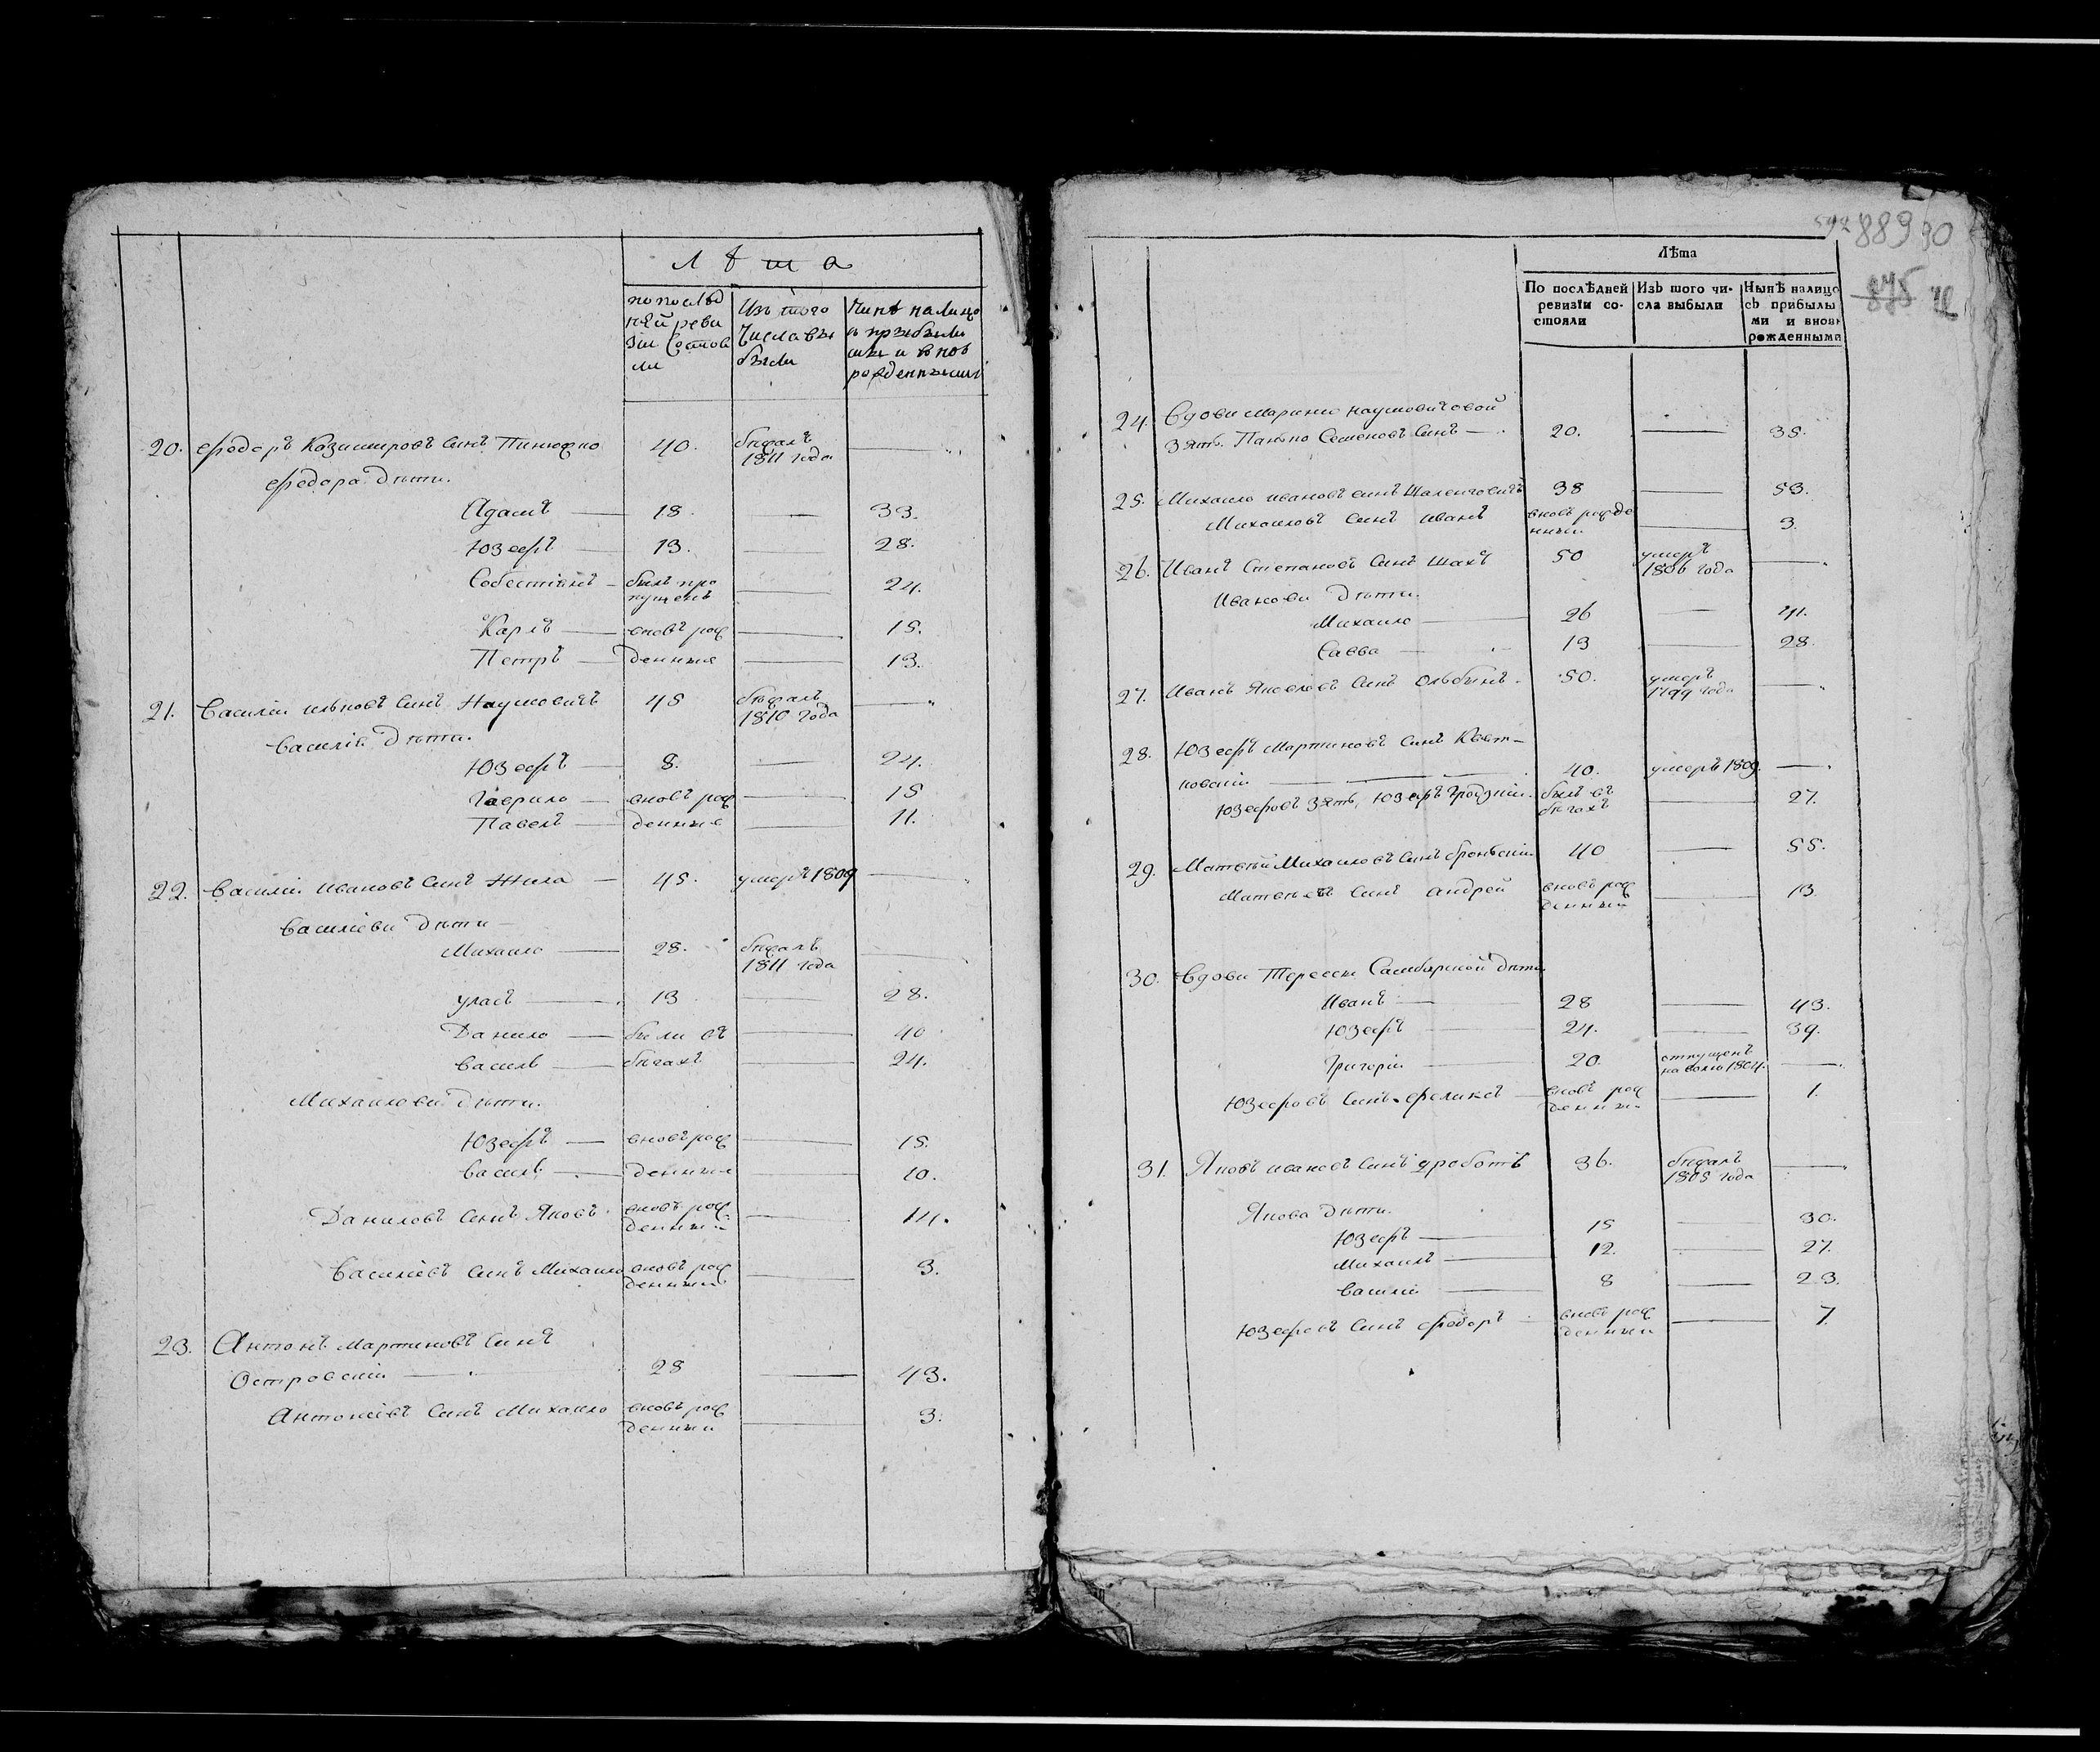 Лѣта
по послѣд
ней реви
зіи состоя
ли
Изъ того
числа вы
были
Нынѣ налицо
съ прибылы
ми и внов
рожденными
20. Федоръ Казимировъ синъ 40. бѣжалъ
1811 года
Федора дѣти.
Адамъ 18. 33.
Юзефъ 13. 28.
Собестіянъ былъ про
пущенъ 24.
Карлъ вновь рож 15.
Петръ денные 13.
21. Василій синъ Наумовичъ 45 бѣжалъ
1810 года
Василія дѣти.
Юзефъ 8. 24.
Гаврило вновь рож 15
Павелъ денные 11.
22. Василій Ивановъ синъ Жила 45. умеръ 1809
Василіеви дѣти
Михайло 28. бѣжалъ
1811 года
Уласъ 13 28.
Данило были въ 40
Василь бѣгахъ 24.
Михайлови дѣти.
Юзефъ вновь рож 15.
Василь денные 10.
Даниловъ синъ Яковъ вновь рож
денный 14.
Василіевъ синъ Михайло вновь рож
денный 3.
23. Антонъ Мартиновъ синъ
Островскій 28 43.
Антоніевъ синъ Михайло вновь рож
денный 3.
592 889 90
875 12
Лѣта
По послѣдней
ревизіи со-
стояли
Изъ того чи-
сла выбыли
Нынѣ налицо
съ прибылы
ми и внов
рожденными
24. Вдови Марини Наумовичовой
зять Панько Семеновъ синъ 20. 35.
25. Михайло Ивановъ синъ 38 53.
Михайловъ синъ Иванъ вновь рожде
нный 3.
26. Иванъ Степановъ синъ Шахъ 50 умеръ
1806 года
Иванови дѣти.
Михайло 26 41.
Савва 13 28.
27. Иванъ Яковлевъ синъ 50. умеръ
1799 года
28. Юзефъ Мартиновъ синъ Квят-
ковскій 40. умеръ 1809.
Юзефовъ зять, Юзефъ былъ въ
бѣгахъ 27.
29. Матвѣй Михайловъ синъ 40 55.
Матвѣевъ синъ Андрей вновь рож
денный 13.
30. Вдови Терески Самборской дѣти
Иванъ 28 43.
Юзефъ 24. 39.
Григорій 20. отпущенъ
на волю 1804.
Юзефовъ синъ Феликсъ вновь рож
денный 1.
31. Яковъ Ивановъ синъ 36. бѣжалъ
1805 года
Якова дѣти.
Юзефъ 15 30.
Михаилъ 12. 27.
Василій 8 23.
Юзефовъ синъ Федоръ вновь рож
денный 7.